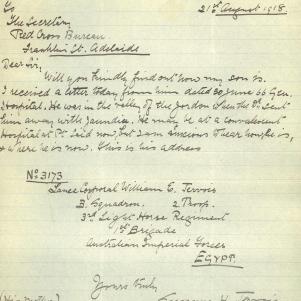 To 21st August 1918
The Secretary
Red Cross Bureau
Franklin St. Adelaide
Dear Sir,
Will you kindly find out how my son is.
I received a letter today from him dated 30 June 66 Gen.
Hospital. He was in the valley of the Jordon when the Dr. sent
him away with Jaundice. He may be at a convalescent
Hospital at Pt. Said now, but I am anxious to hear how he is,
& where he is now. This is his address
No 3173
Lance Corporal William E.
B. Squadron. 2 Troop.
3rd Light Horse Regiment
1st Brigade
Australian Imperial Forces
EGYPT.
Yours truly
(His Mother)